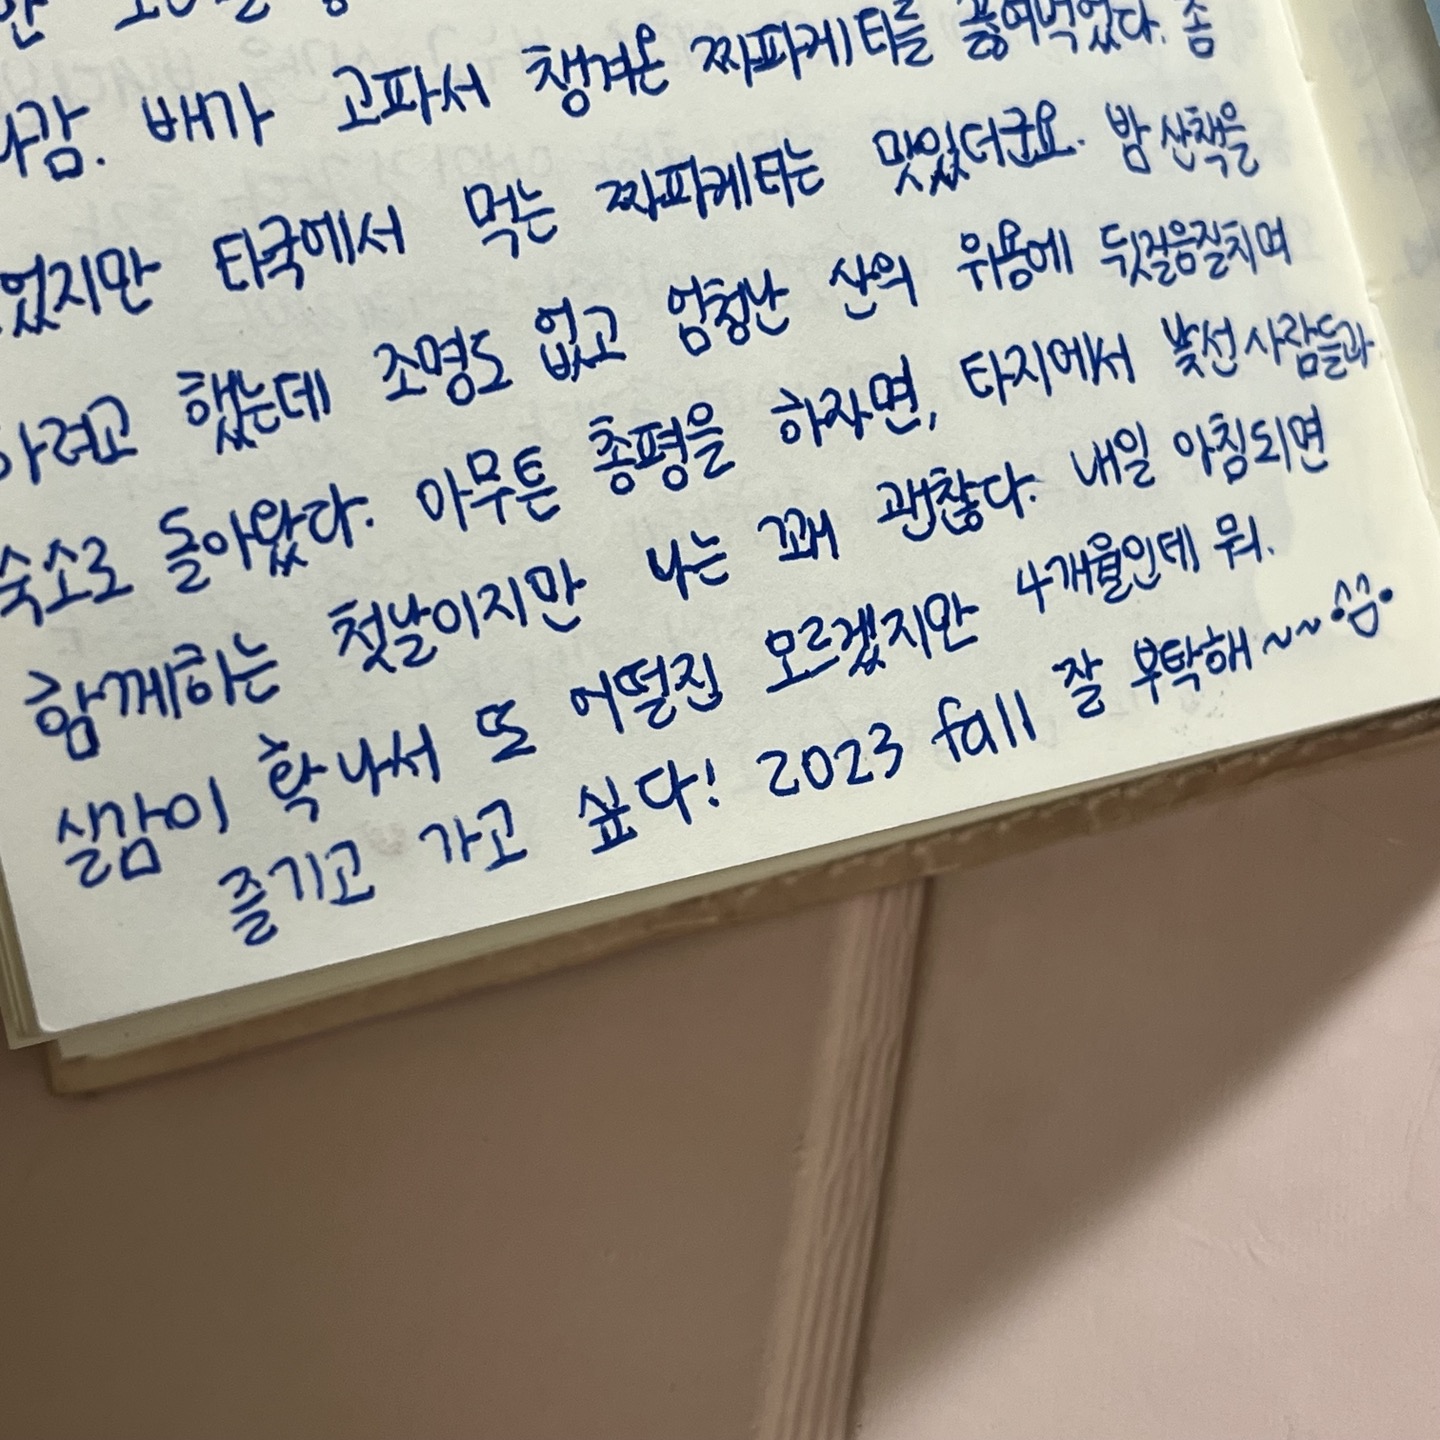 나감. 배가 고파서 챙겨온 짜파게티를 끓여먹었다. 좀
었지만 타국에서 먹는 짜파게티는 맛있더군요. 밤 산책을
하려고 했는데 조명도 없고 엄청난 산의 위용에 뒷걸음질치며
숙소로 돌아왔다. 아무튼 총평을 하자면, 타지에서 낯선 사람들과
함께하는 첫날이지만 나는 꽤 괜찮다. 내일 아침되면
실감이 확 나서 또 어떨진 모르겠지만 4개월인데 뭐.
즐기고 가고 싶다! 2023 fall 잘 부탁해~~